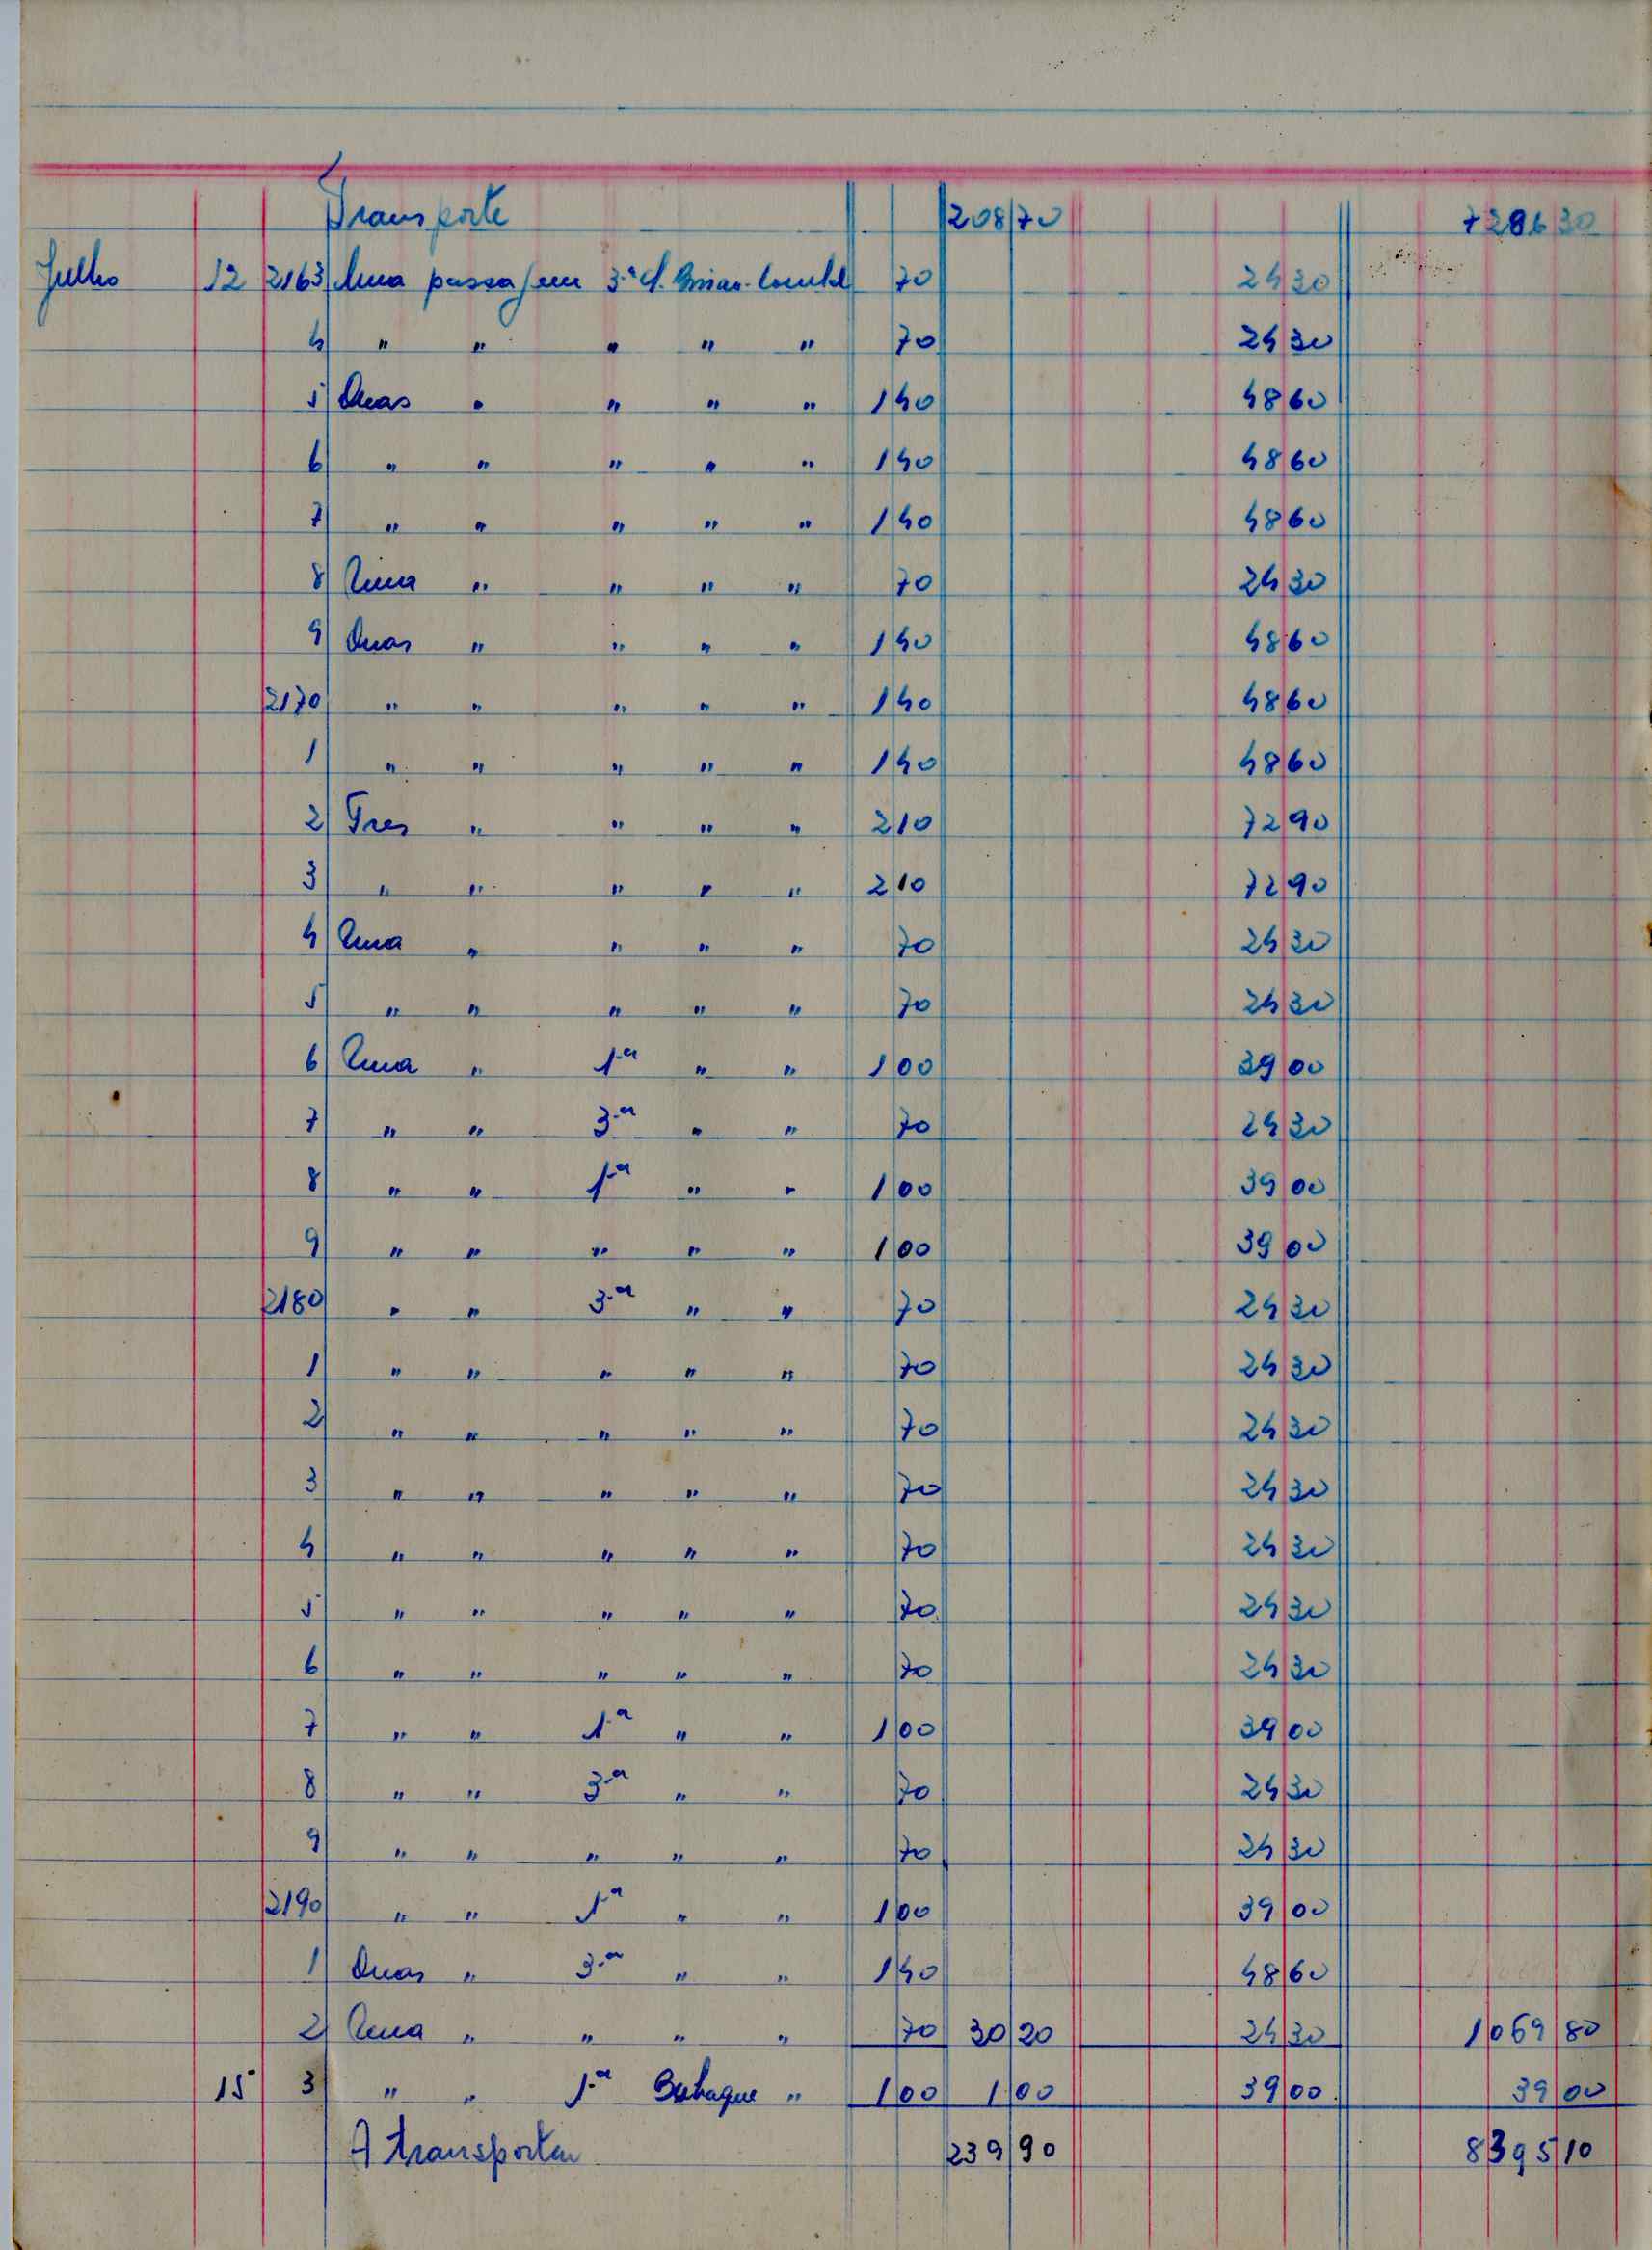 Transporte 208 70 7286 30
Julho 12 2163 Uma passagem 3.ª cl. Bissau- 70 24 30
4 " " " " " 70 24 30
5 Duas " " " " 1 40 48 60
6 " " " " " 1 40 48 60
7 " " " " " 1 40 48 60
8 Uma " " " " 70 24 30
9 Duas " " " " 1 40 48 60
2170 " " " " " 1 40 48 60
1 " " " " " 1 40 48 60
2 Tres " " " " 2 10 72 90
3 " " " " " 2 10 72 90
4 Uma " " " " 70 24 30
5 " " " " " 70 24 30
6 Uma " 1.ª " " 1 00 39 00
7 " " 3.ª " " 70 24 30
8 " " 1.ª " " 1 00 39 00
9 " " " " " 1 00 39 00
2180 " " 3.ª " " 70 24 30
1 " " " " " 70 24 30
2 " " " " " 70 24 30
3 " " " " " 70 24 30
4 " " " " " 70 24 30
5 " " " " " 70 24 30
6 " " " " " 70 24 30
7 " " 1.ª " " 1 00 39 00
8 " " 3.ª " " 70 24 30
9 " " " " " 70 24 30
2190 " " 1.ª " " 1 00 39 00
1 Duas " 3.ª " " 1 40 48 60
2 Uma " " " " 70 30 20 24 30 1069 80
15 3 " " 1.ª Bubaque " 1 00 1 00 39 00 39 00
A transportar 239 90 8395 10